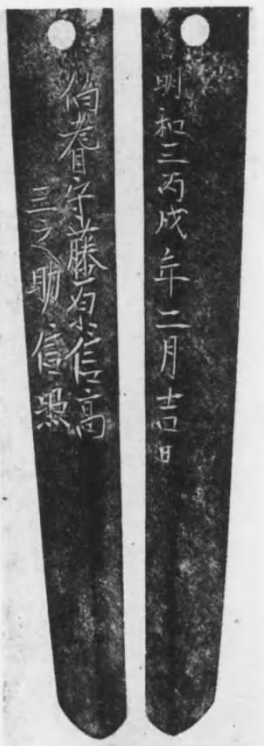 明和三丙戌年二月吉日
伯耆守藤原信高
三之助信照